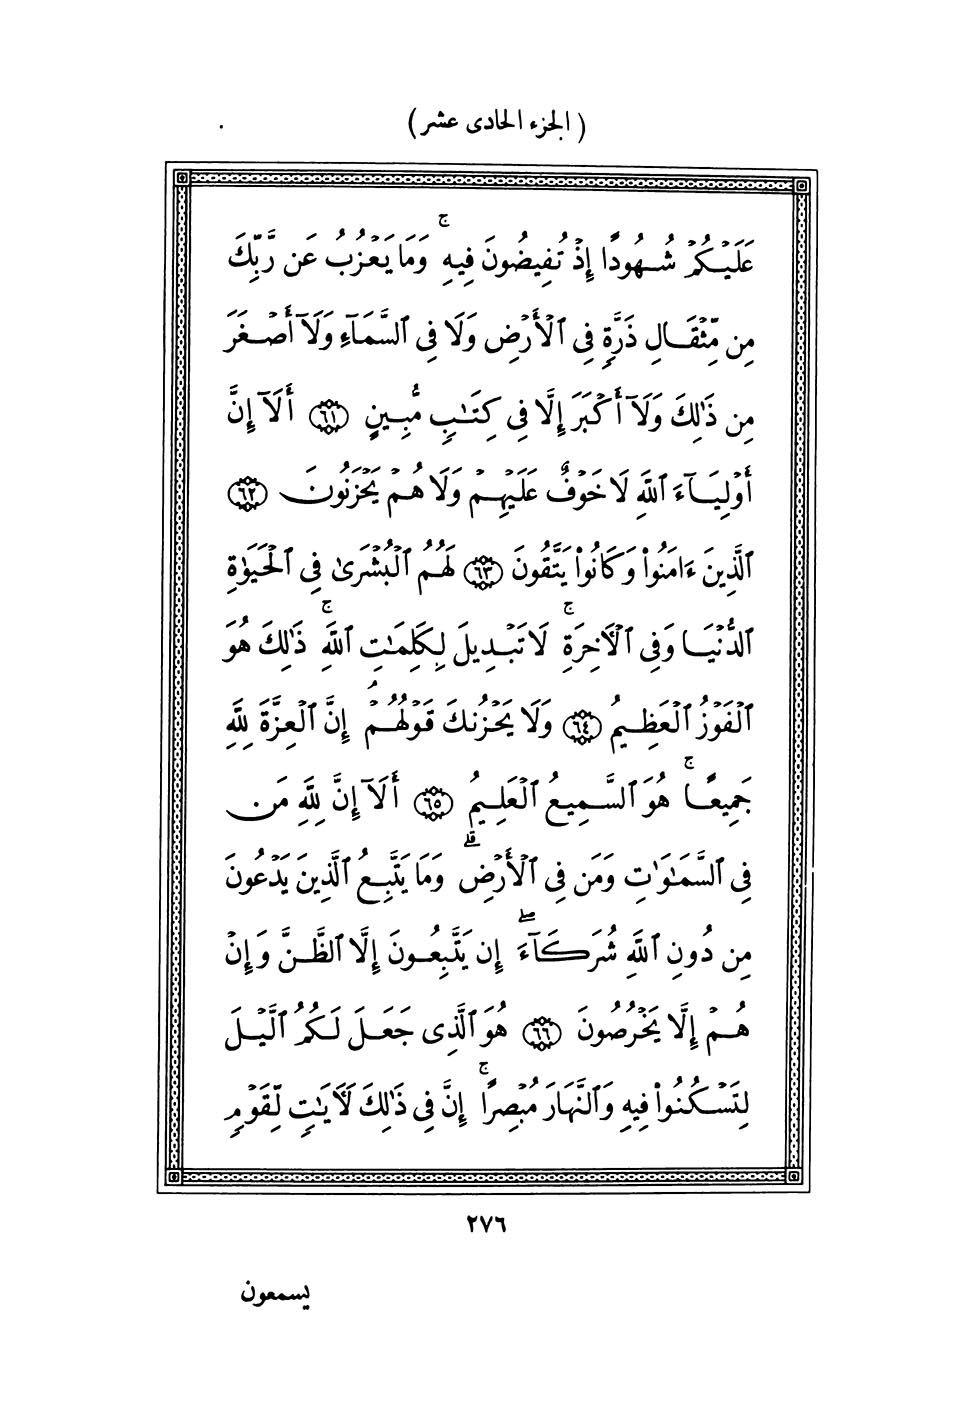 ( الجزء الحادى عشر )
عَلَيْكُمْ شُهُودًا إِذْ تُفِيضُونَ فِيهِ ۚ وَمَا يَعْزُبُ عَن رَّبِّكَ
مِن مِّثْقَالِ ذَرَّةٍ فِى ٱلْأَرْضِ وَلَا فِى ٱلسَّمَآءِ وَلَآ أَصْغَرَ
مِن ذَٰلِكَ وَلَآ أَكْبَرَ إِلَّا فِى كِتَٰبٍ مُّبِينٍ ٦١ أَلَآ إِنَّ
أَوْلِيَآءَ ٱللَّهِ لَا خَوْفٌ عَلَيْهِمْ وَلَا هُمْ يَحْزَنُونَ ٦٢
ٱلَّذِينَ ءَامَنُوا۟ وَكَانُوا۟ يَتَّقُونَ ٦٣ لَهُمُ ٱلْبُشْرَىٰ فِى ٱلْحَيَوٰةِ
ٱلدُّنْيَا وَفِى ٱلْءَاخِرَةِ ۚ لَا تَبْدِيلَ لِكَلِمَٰتِ ٱللَّهِ ۚ ذَٰلِكَ هُوَ
ٱلْفَوْزُ ٱلْعَظِيمُ ٦٤ وَلَا يَحْزُنكَ قَوْلُهُمْ ۘ إِنَّ ٱلْعِزَّةَ لِلَّهِ
جَمِيعًا ۚ هُوَ ٱلسَّمِيعُ ٱلْعَلِيمُ ٦٥ أَلَآ إِنَّ لِلَّهِ مَن
فِى ٱلسَّمَٰوَٰتِ وَمَن فِى ٱلْأَرْضِ ۗ وَمَا يَتَّبِعُ ٱلَّذِينَ يَدْعُونَ
مِن دُونِ ٱللَّهِ شُرَكَآءَ ۖ إِن يَتَّبِعُونَ إِلَّا ٱلظَّنَّ وَإِنْ
هُمْ إِلَّا يَخْرُصُونَ ٦٦ هُوَ ٱلَّذِى جَعَلَ لَكُمُ ٱلَّيْلَ
لِتَسْكُنُوا۟ فِيهِ وَٱلنَّهَارَ مُبْصِرًا ۚ إِنَّ فِى ذَٰلِكَ لَءَايَٰتٍ لِّقَوْمٍ
٢٧٦
يسمعون